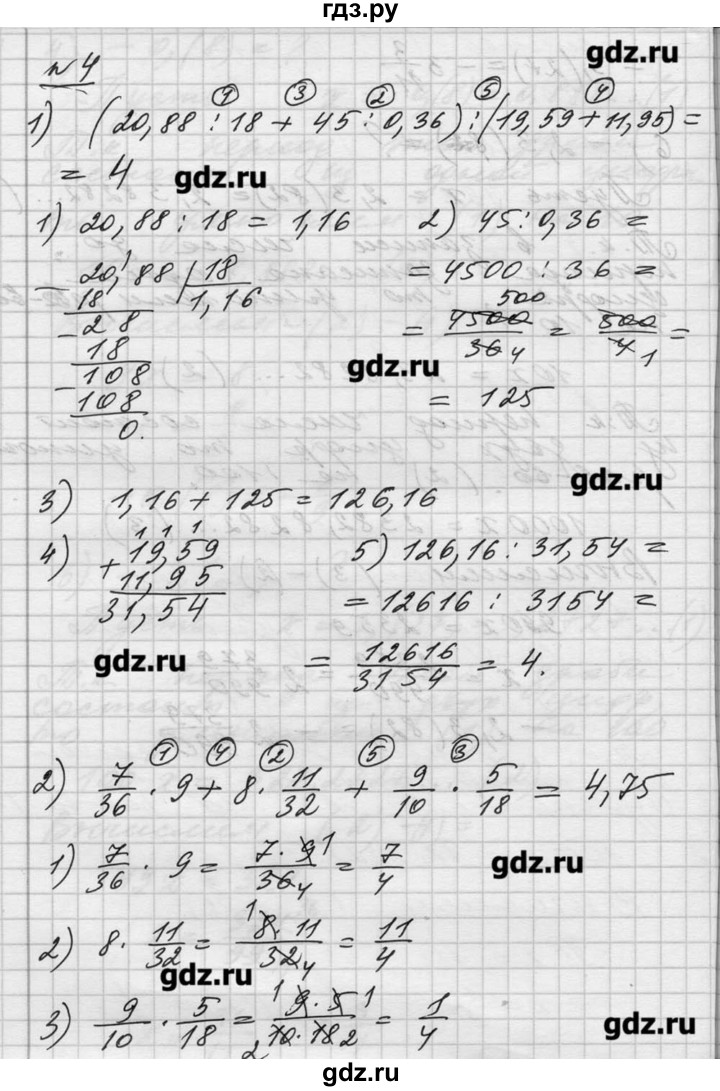 гдз.ру
gdz.ru
№ 4
① ③ ② ⑤ ④
1) (20,88 : 18 + 45 : 0,36) : (19,59 + 11,95) =
= 4
gdz.ru
1) 20,88 : 18 = 1,16
20,88 | 18
18 1,16
- 28
18
- 108
108
0.
2) 45 : 0,36 =
= 4500 : 36 =
= 4500/36 = 500/4 =
500 4 1
= 125
gdz.ru
gdz.ru
3) 1,16 + 125 = 126,16
4) 1 1 1
+ 19,59
11,95
31,54
5) 126,16 : 31,54 =
= 12616 : 3154 =
= 12616/3154 = 4.
gdz.ru
① ④ ② ⑤ ③
2) 7/36 · 9 + 8 · 11/32 + 9/10 · 5/18 = 4,75
1) 7/36 · 9 = 7 · 9/36 = 7/4
1 4
gdz.ru
2) 8 · 11/32 = 8 · 11/32 = 11/4
1 4
gdz.ru
3) 9/10 · 5/18 = 9 · 5/10 · 18 = 1/4
1 1 2 2
gdz.ru
гдз.ру